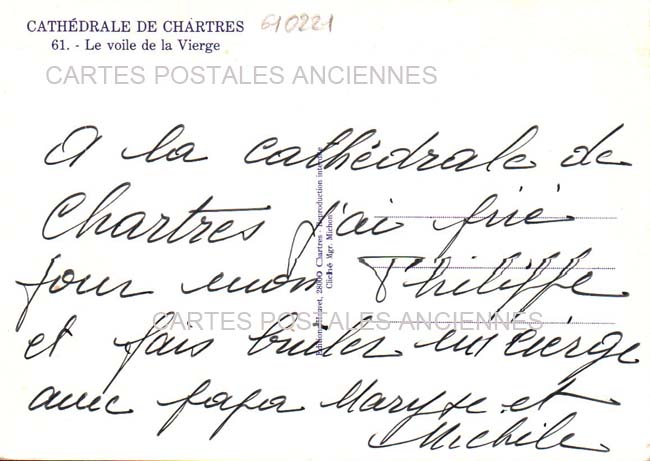 CATHÉDRALE DE CHARTRES 610221
61. - Le voile de la Vierge
CARTES POSTALES ANCIENNES
A la cathédrale de
Chartres j'ai prié
pour mon Philippe
et fais bruler un cierge
avec papa Maryse et
Michèle
CARTES POSTALES ANCIENNES
Editions Houvet, 28000 Chartres - Reproduction interdite
Cliché Mgr. Michon